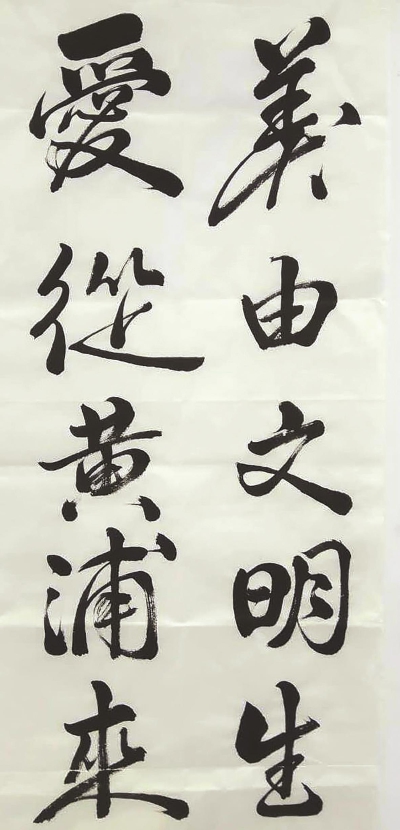 美由文明生
愛從黄浦來